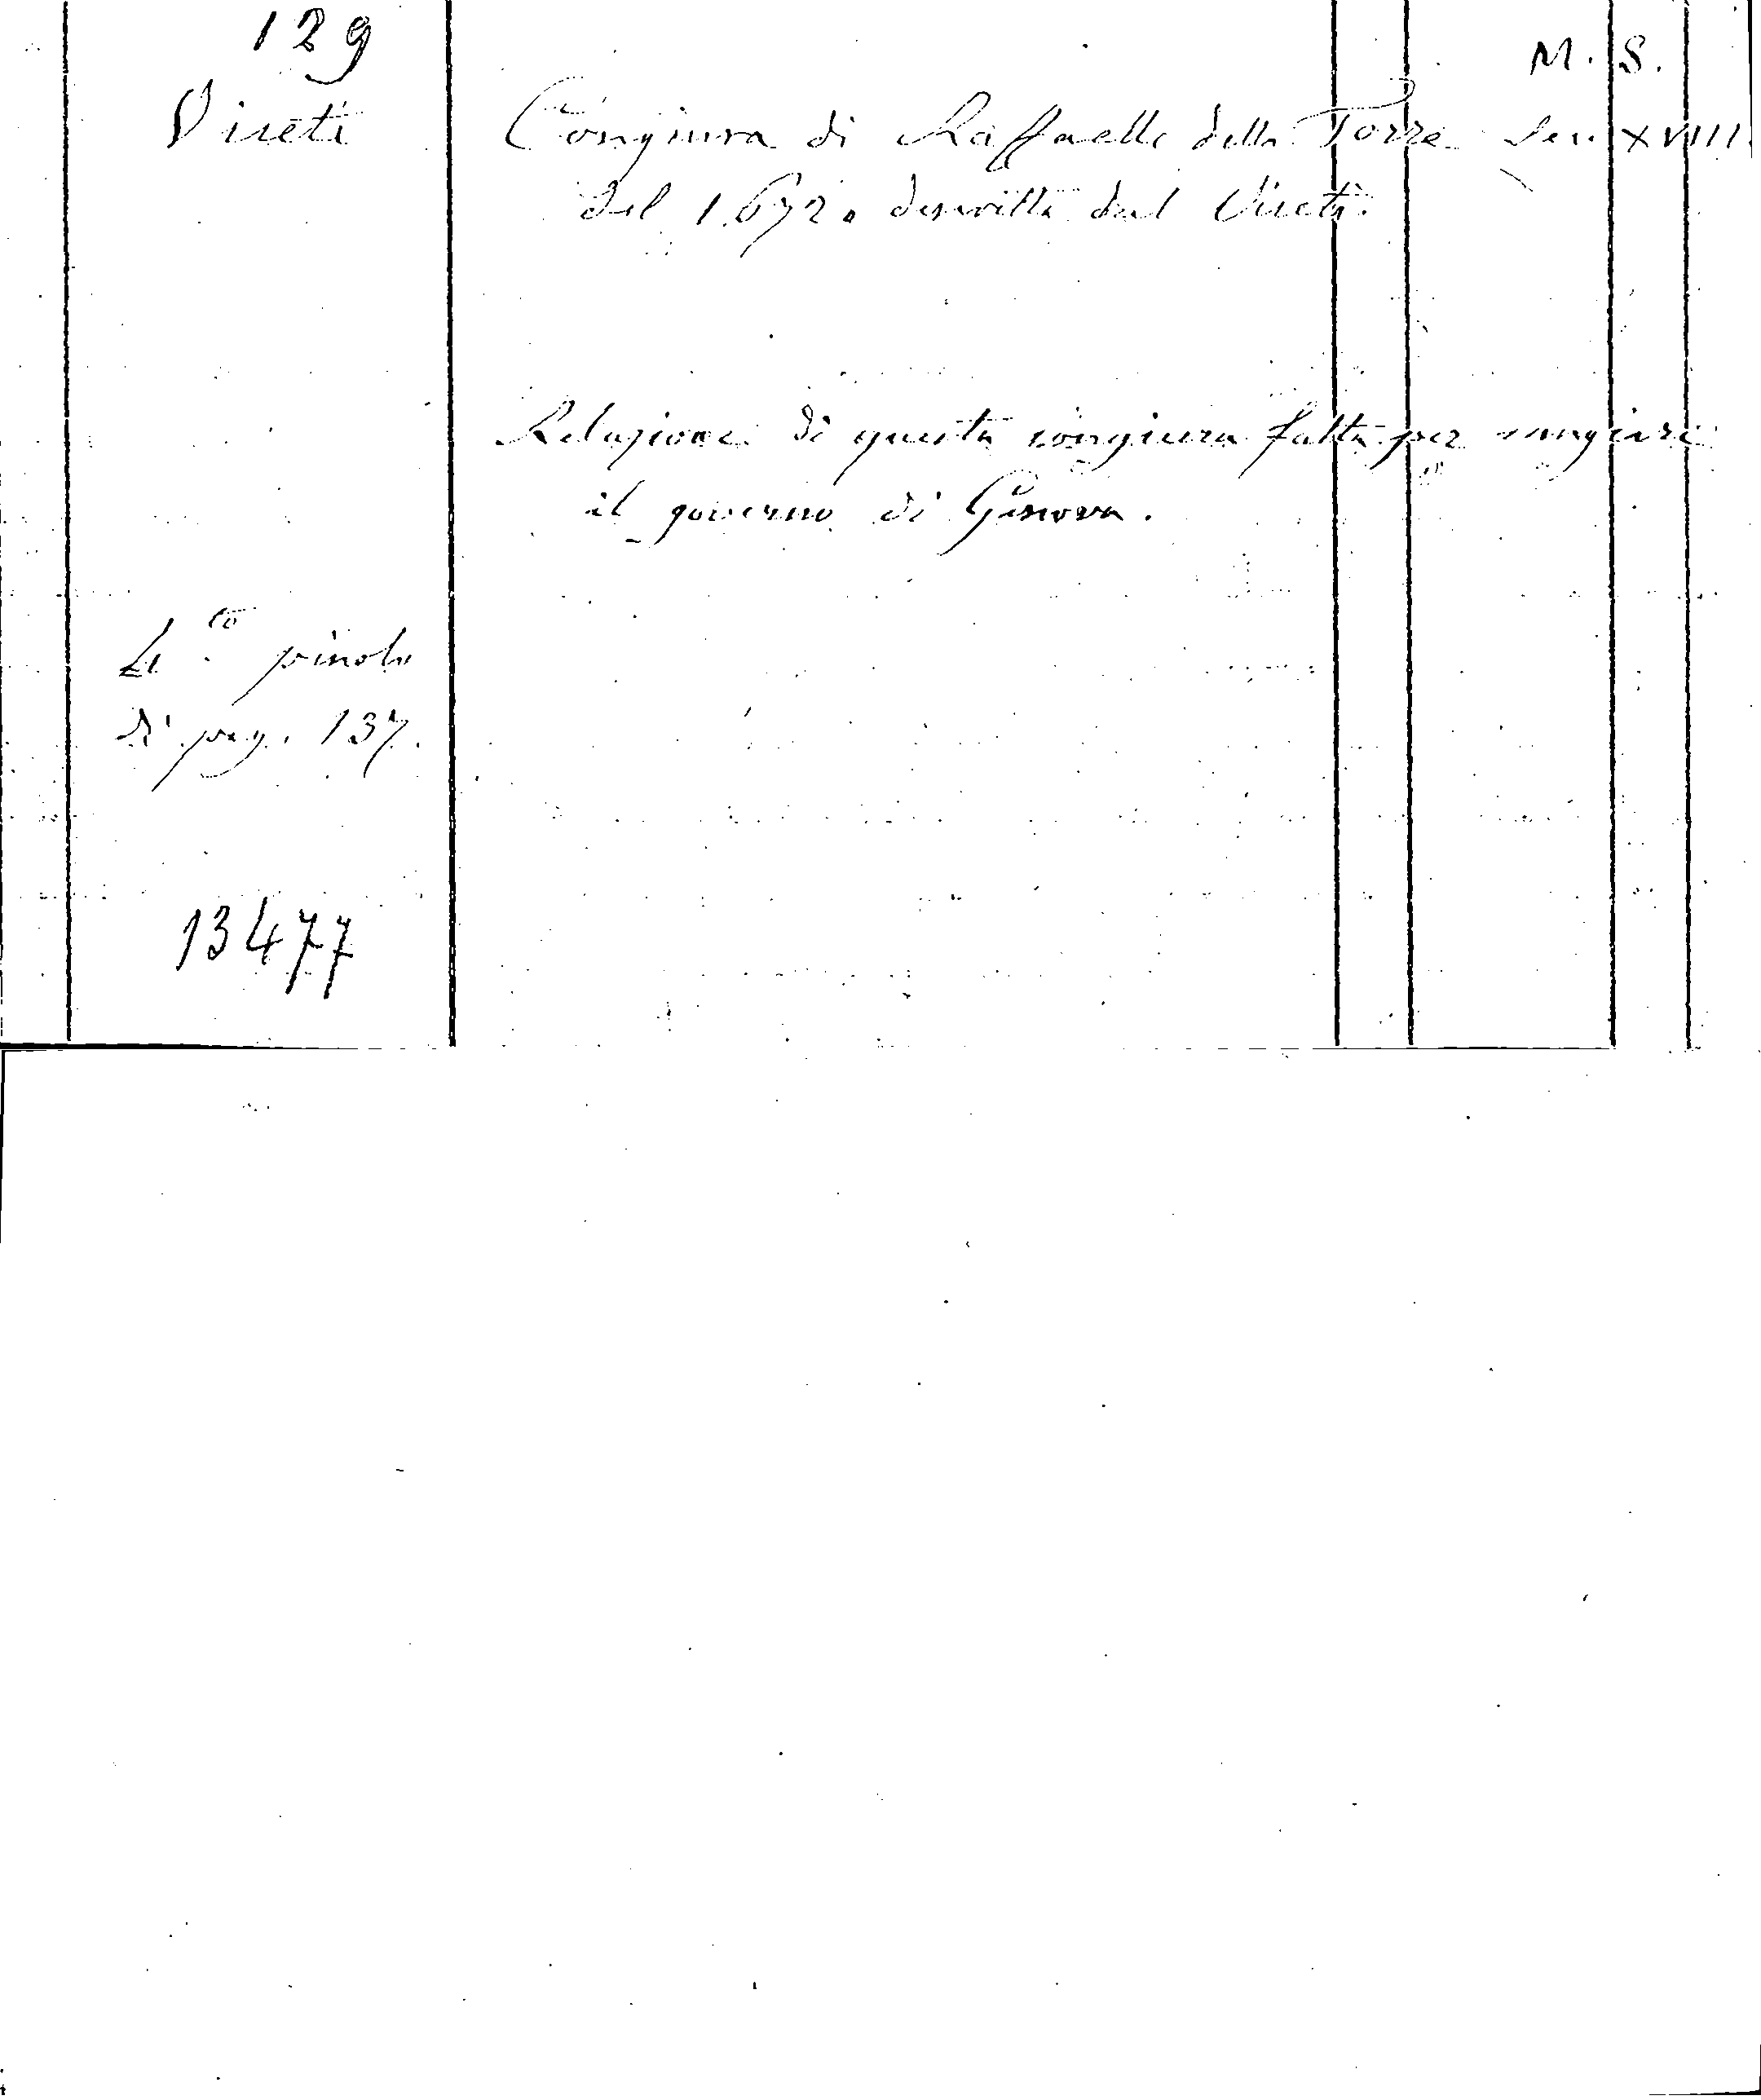 129
M. S.
Viceti Congiura di Raffaelle della Torre Sec. XVIII.
del 1672. descritta dal Viceti.
Relazione di questa congiura fatta per cangiare
il governo di Genova.
in piccolo
di pag. 137.
13477